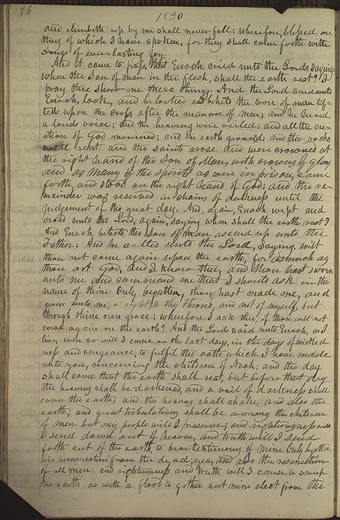 86
1830
and climbeth up by me shall never fall: wherefore, blessed are
they of which I have spoken, for they shall come forth with
songs of everlasting joy.
And it came to pass, that Enoch cried unto the Lord, saying
when the Son of man in the flesh, shall the earth rest? I
pray thee show me these things. And the Lord said unto
Enoch, look, and he looked and beheld the Son of man lif-
ted upon the cross after the manner of men; and he heard
a loud voice; and the heavens were veiled; and all the crea-
tion of God mourned; and the earth groaned: and the rocks
were rent: and the saints arose and were crowned at
the right hand of the Son of Man, with crowns of glory
and as many of the spirits as were in prison, came
forth, and stood on the right hand of God; and the re-
mainder was reserved in chains of darkness until the
judgement of the great day. And again, Enoch wept and
cried unto the Lord, again, saying when shall the earth rest?
And Enoch beheld the Son of man ascend up unto the
Father: And he called unto the Lord, saying, wilt
thou not come again upon the earth, for as much as
thou art God, and I know thee, and thou hast sworn
unto me and commanded me that I should ask in the
name of thine Only Begotten, thou hast made me, and
given unto me, a right to thy throne, and not of myself, but
through thine own grace; wherefore I ask thee if thou will not
come again on the earth? And the Lord said unto Enoch, as I
live, even so will I come in the last day, in the days of wicked
ness and vengeance, to fulfil the oath which I have made
unto you, concerning the children of Noah; and the day
shall come that the earth shall rest, but before that day
the heavens shall be darkened, and a veil of darkness shall
cover the earth; and the heavens shall shake, and also the
earth; and great tribulations shall be among the children
of men but my people will I preserve; and righteousness will
I send down out of heaven, and truth will I send
forth out of the earth to bear testimony of mine Only begotten
his resurrection from the dead; yea, and also the resurrection
of all men: and righteousness and truth will I cause to sweep
the earth as with a flood to gather out mine elect from the